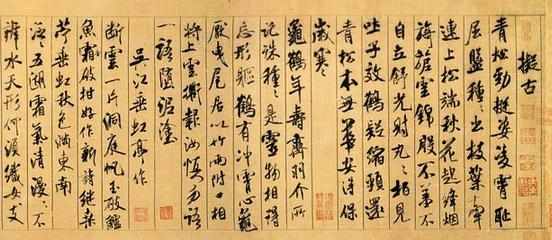 擬古
青松勁挺姿凌霄恥
屈盤種種出枝葉牽
連上松端秋花起絳煙
旖旎雲錦殷不羞不
自立舒光射丸丸柏見
吐子效鶴疑縮頸還
青松本無華安得保
歲寒
龜鶴年壽齊羽介所
託殊種種是靈物相得
忘形軀鶴有沖霄心龜
厭曳尾居以竹兩附口相
將上雲衢報汝慎勿語
一語墮泥塗
吳江垂虹亭作
斷雲一片洞庭帆玉破鱸
魚霜破柑好作新詩繼桑
苧垂虹秋色滿東南
泛泛五湖霜氣清漫漫不
辨水天形何須織女支